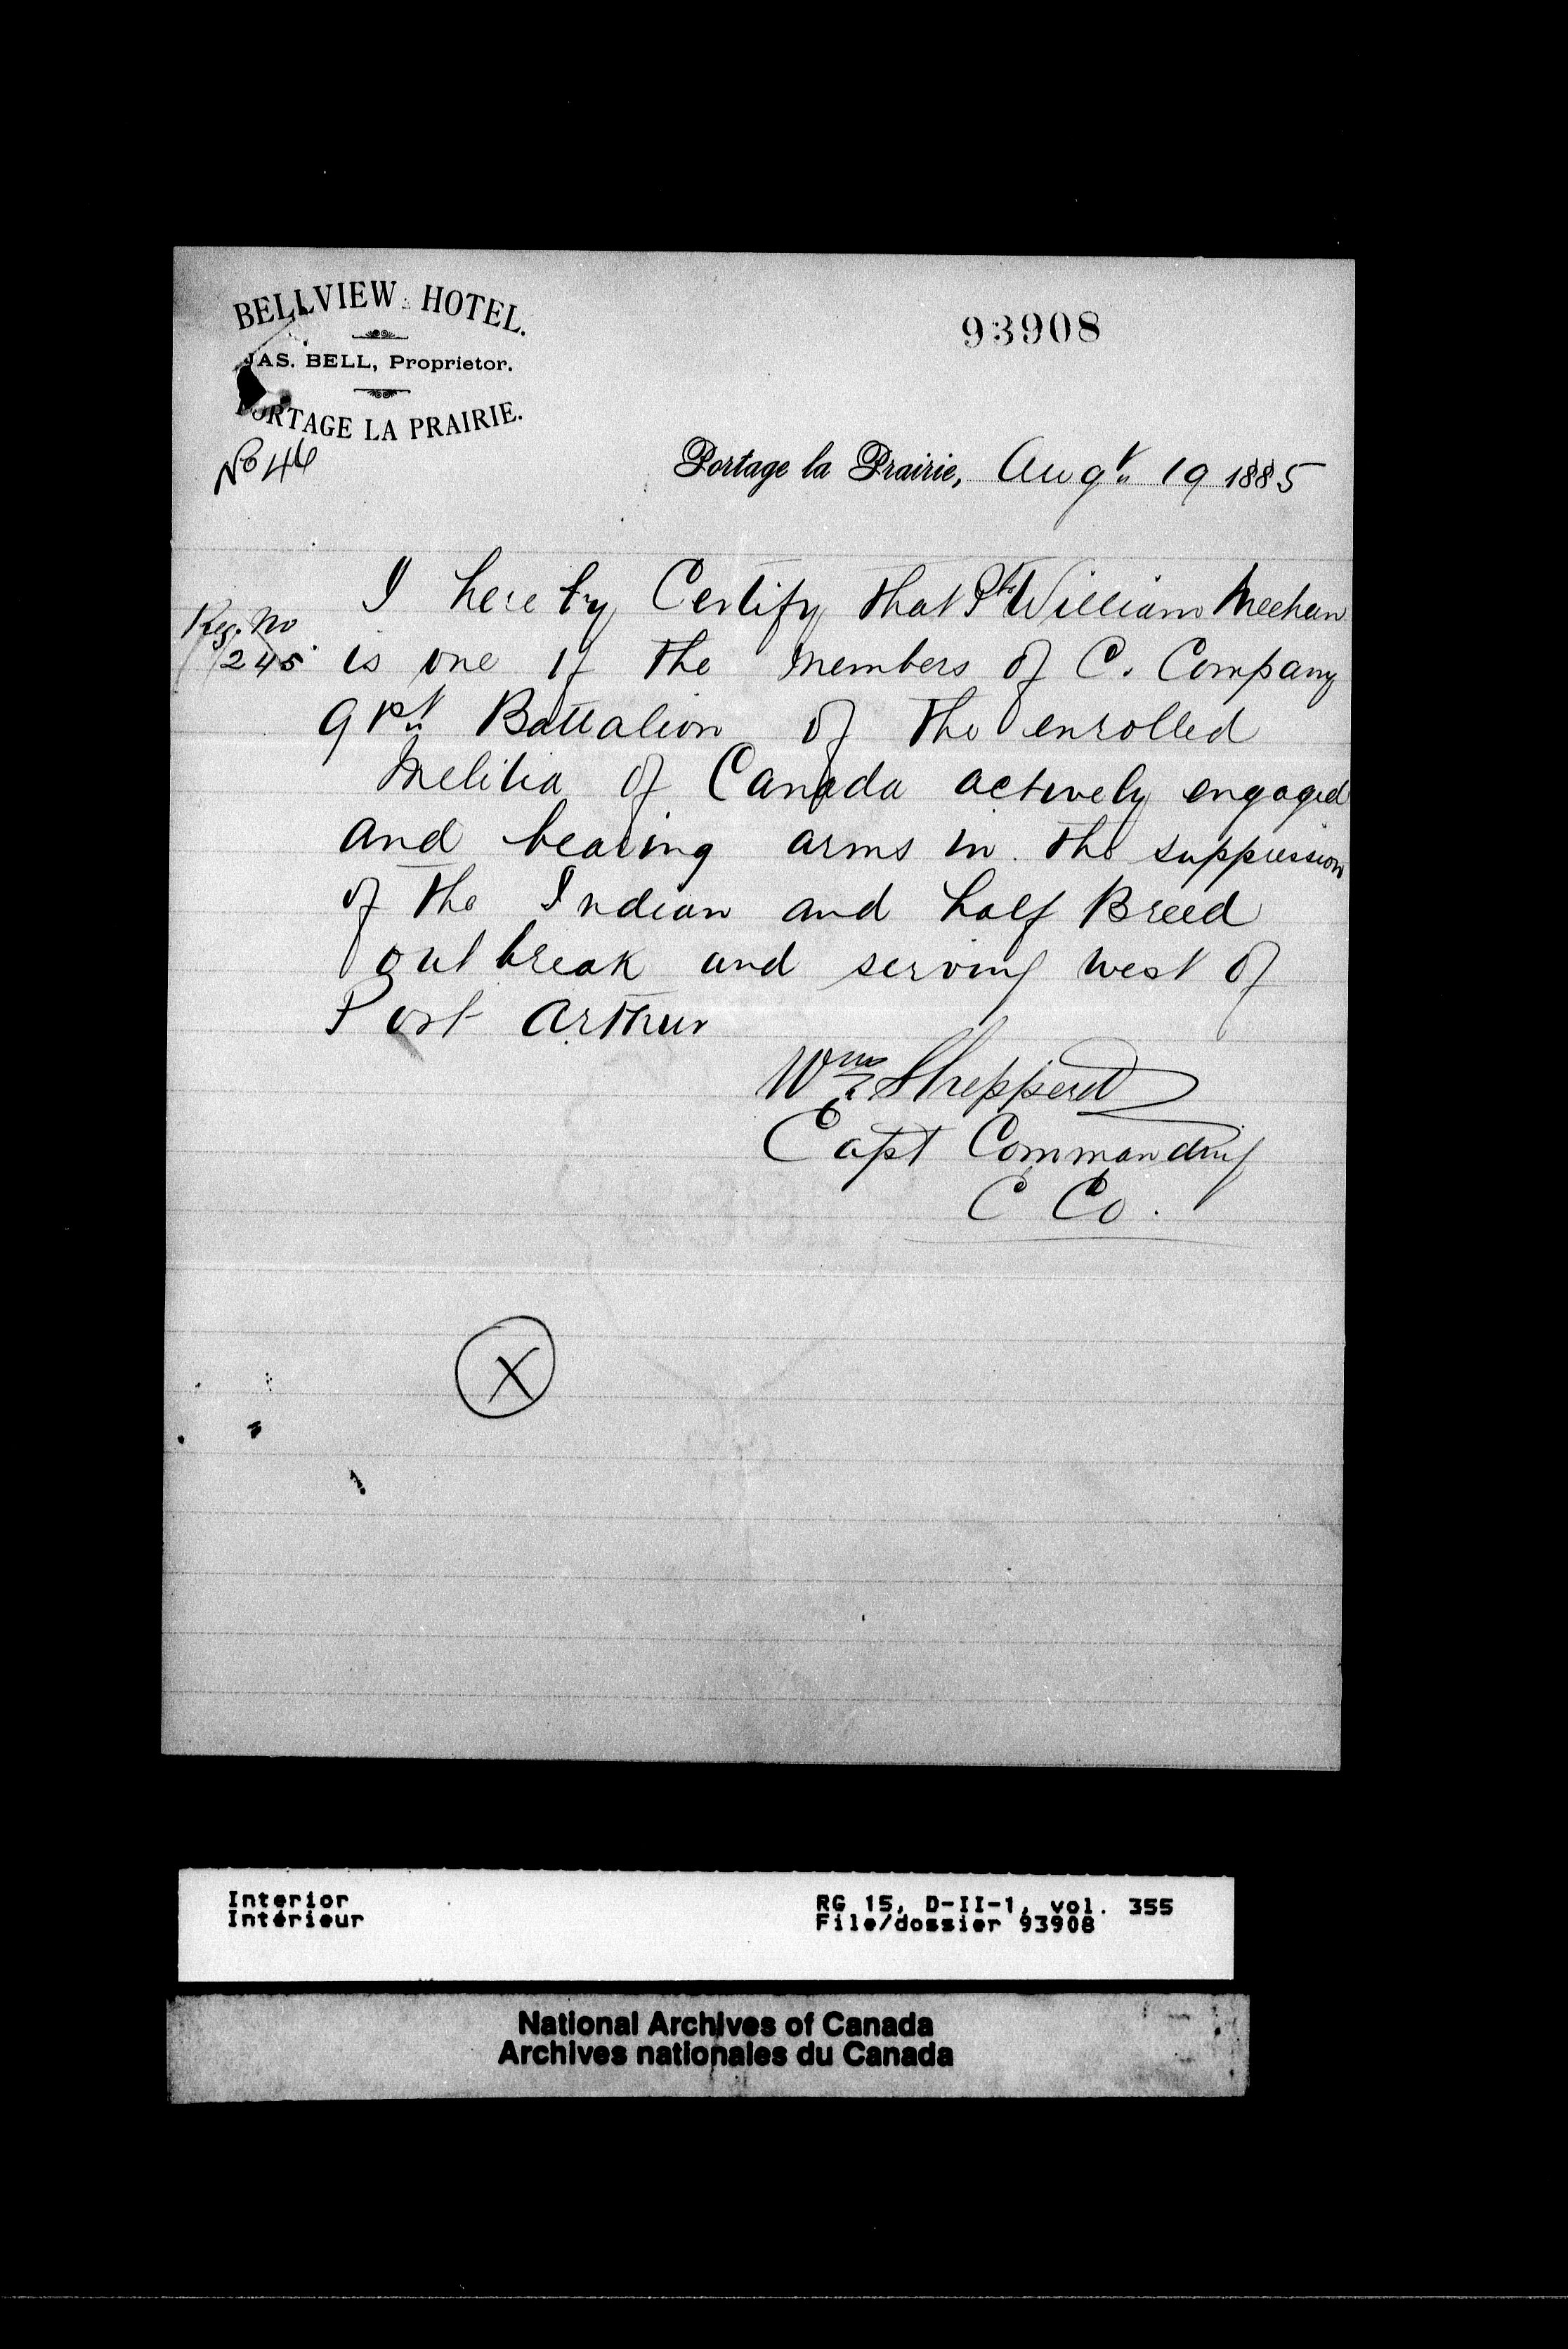 BELLVIEW HOTEL.
JAS. BELL, Proprietor.
PORTAGE LA PRAIRIE.
93908
No 46
Portage la Prairie, Augt 19 1885
I hereby Certify that Pt William Meehan
Reg. No
245
is one of the members of C. Company
91st Battalion of the enrolled
Melitia of Canada actively engaged
and bearing arms in the suppression
of the Indian and half Breed
out break and serving west of
Port Arthur
Wm Shepperd
Capt Commanding
C Co.
X
Interior
Intérieur
RG 15, D-II-1, vol. 355
File/dossier 93908
National Archives of Canada
Archives nationales du Canada